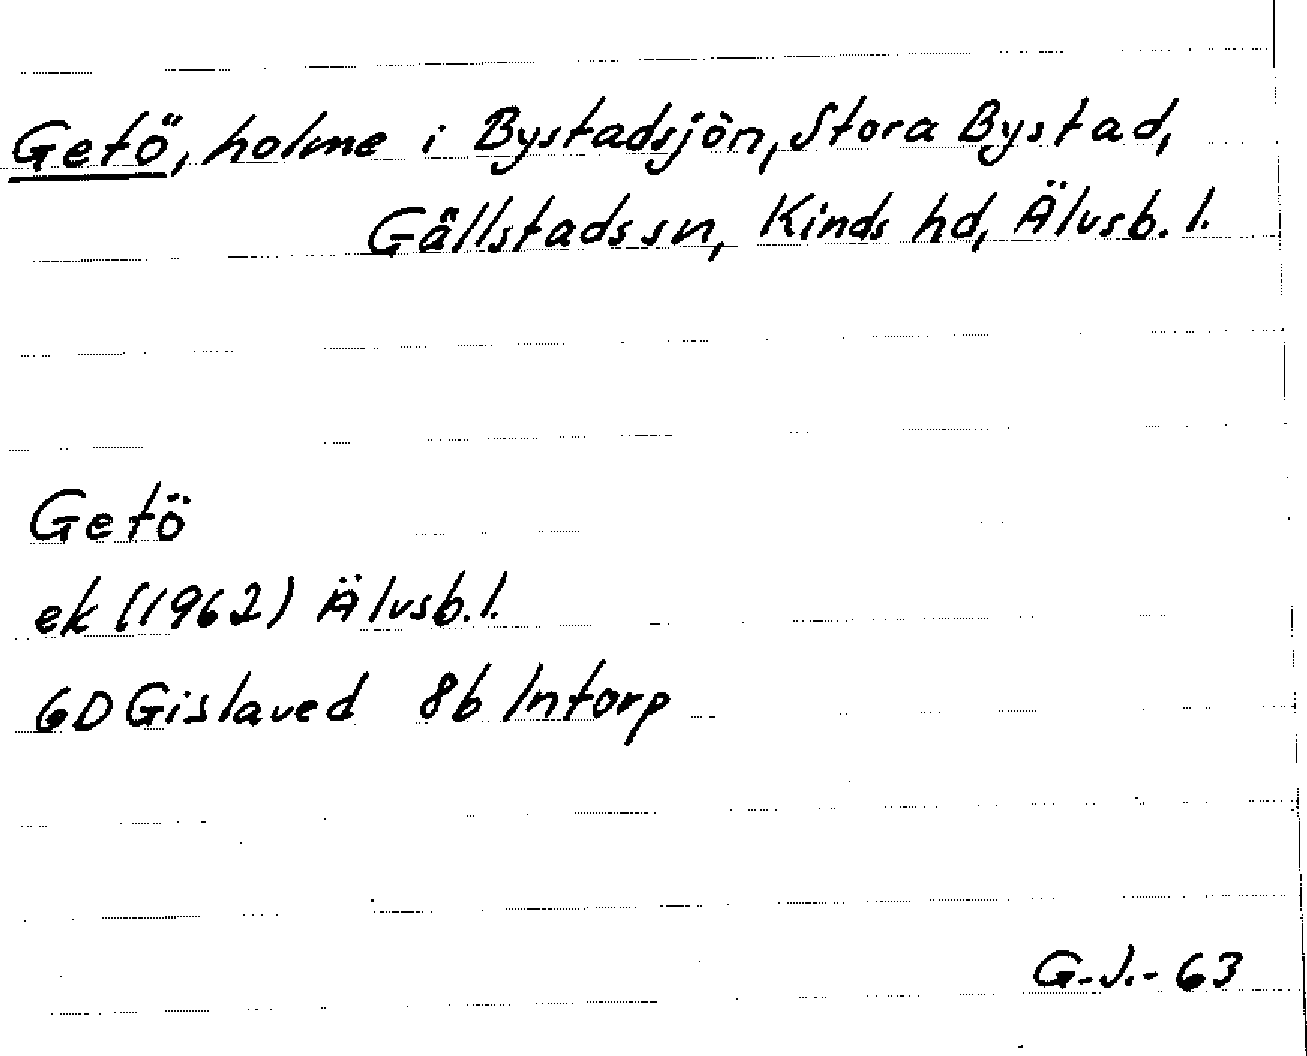 Getö, holme i Bystadsjön, Stora Bystad,
Gällstads sn, Kinds hd, Älvsb. l.
Getö
ek (1962) Älvsb. l.
6D Gislaved 8b Intorp
G.J.-63